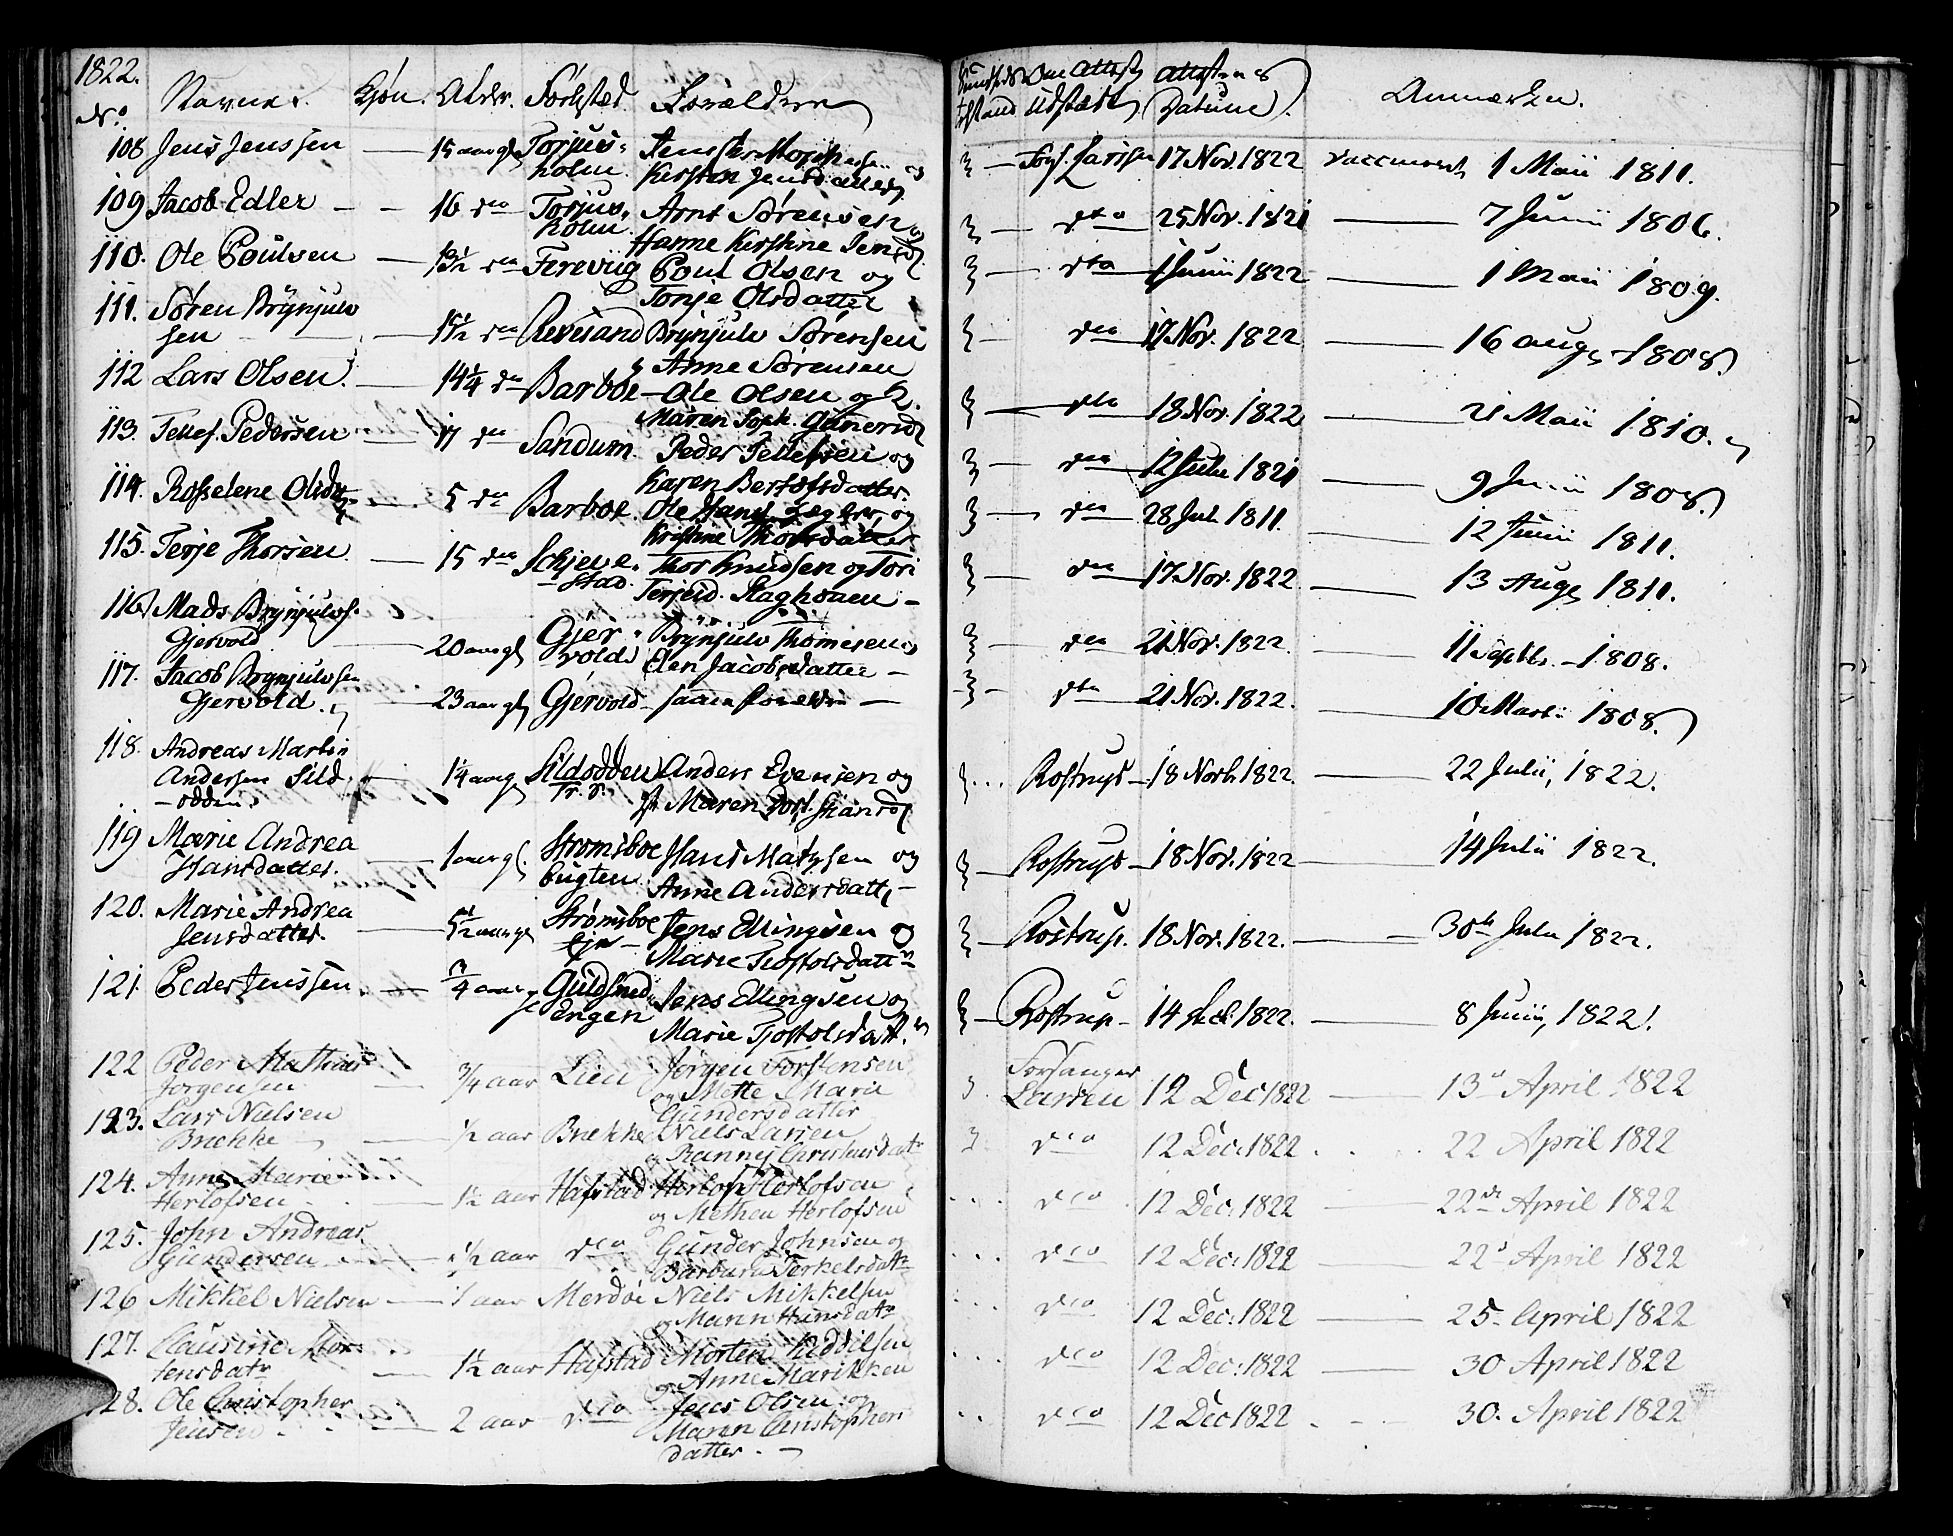 1822.
No. Navne. Kjøn. Alder. Födsted Forældrene
108 Jens Jenssen — 15 aar gl Torjus-
holm Kirsten Jensdatter
109 Jacob Edler — — 16 do Torjus-
holm Arnt Sørensen og
Hanne Kirstine Jensd
110. Ole Poulsen — 13½ do Fereviig Poul Olsen og
Tonje Olsdatter
111. Søren Brynjulv
sen — 15½ do Revesand Brynjulv Sørensen
& Anne Sørensen
112 Lars Olsen. — 14¼ do Barboe — Ole Olsen og
Maren Soph. Gunerid
113. Tellef Pedersen — 17 do Sandum. Peder Tellefsen og
Karen Bertofsdatter.
114. Rosselene Olsdtr — 5 do Barboe. Ole Hans og
Kirstine Thorsdatter
115. Terje Thorsen — 15 do Schjeve-
stad. Thor Knudsen og Tori
Terjeid.
116 Mads Brynjulvs.
Gjervold — 20 aar gl Gjer-
vold Brynjulv Thomesen
Elen Jacobsdatter —
117. Jacob Brynjulvsen
Gjervold. — 23 aar gl Gjervold — samme Forældre —
118. Andreas Martin
Andersen Sild
-odden. 1¼ aar g Sildodden
Tr. Anders Evensen og
Maren Dort.
119 Marie Andrea
Hansdatter. — 1 aar gl. Strømsboe
bugten Hans Matysen og
Anne Andersdatt —
120. Marie Andrea
Jensdatter. — 5½ aar gl Strømsboe
Eje — Jens Ellingsen og
Marie Tjostolsdattr
121. Peder Jenssen. — ¾ aar gl Guldsmed
engen Jens Ellingsen og
Marie Tjostolsdatt.
122 Peder Mathias
Jørgensen — ¾ aar Lien Jørgen Torstensen
og Mette Marie
Gundersdatter
123. Lars Nielsen
Brekke — ½ aar Brekke Niels Larsen
og Ranney Christensdatr
124. Anne Marie
Herlofsen — 1½ aar Hafstad Herlof Herlofsen
og Methea Herlofsen
125. John Andreas
Gundersen — 1½ aar dco Gunder Johnsen og
Barbara Terkelsdatr
126 Mikkel Nielsen — 1 aar Merdöe Niels Mikkelsen
og Maren Hansdatr
127. Clausine Mor-
tensdatr — 1½ aar Hafstad Morten Keddilsen
og Anne Marikken
128. Ole Christopher
Jensen — 2 aar dco Jens Olsen og
Maren Christopher
datter. —
Sundheds
tilstand Om Attest
Udstædt Attestens
Datum. Anmærkn.
Sogf. Larssen 17 Nov. 1822 vaccineret 1 Maii 1811.
— dto 25 Nov. 1821 — 7 Junii 1806.
— dto 1 Junii 1822 — 1 Maii 1809.
— dto 17 Nov. 1822 — 16 aug. 1808.
— dto 18 Nov. 1822 — 21 Maii 1810.
— dto 12 Julii 1821 — 9 Junii 1808.
— dto 28 Jul. 1811. — 12 Junii 1811.
— dto 17 Nov. 1822. — 13 Aug. 1811.
— dto 21 Nov. 1822. — 11 Septbr. — 1808.
— dto 21 Nov. 1822. — 10 Marti 1808.
Rostrups — 18 Novb. 1822. — 22 Julii, 1822.
Rostrups — 18 Nov. 1822 — 14 Julii 1822.
— Rostrup. 18 Nov. 1822. — 30te Julii 1822.
— Rostrup — 14 1822. — 8 Junii, 1822.
Forsanger
Larsen 12 Dec 1822 — 13de April 1822
dco 12 Dec: 1822 . . . 22 April 1822
dco 12 Dec: 1822 — 22de April 1822
dco 12 Dec: 1822 — 22d April 1822
dco 12 Dec: 1822 — 25 — April 1822
dco 12 Dec: 1822 — 30 April 1822
dco 12 Dec 1822 . — 30. April 1822